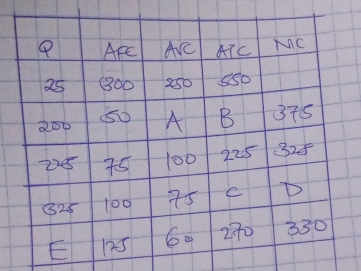 Q AFC AVC ATC MC
25 300 250 550
200 50 A B 375
225 75 100 225 325
325 100 75 C D
E 125 60 270 330